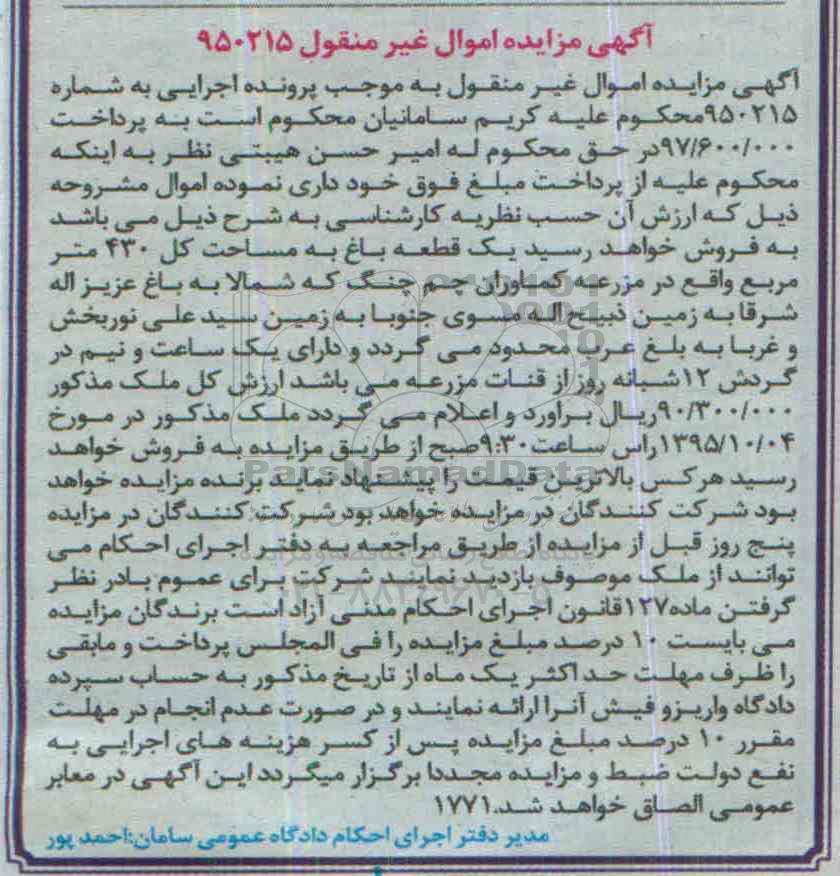 آگهی مزایده اموال غیر منقول ۹۵۰۲۱۵
آگهی مزایده اموال غیر منقول به موجب پرونده اجرایی به شماره
۹۵۰۲۱۵محکوم علیه کریم سامانیان محکوم است به پرداخت
۹۷/۶۰۰/۰۰۰در حق محکوم له امیر حسن هیبتی نظر به اینکه
محکوم علیه از پرداخت مبلغ فوق خود داری نموده اموال مشروحه
ذیل که ارزش آن حسب نظریه کارشناسی به شرح ذیل می باشد
به فروش خواهد رسید یک قطعه باغ به مساحت کل ۴۳۰ متر
مربع واقع در مزرعه کماوران چم چنگ که شمالا به باغ عزیز اله
شرقا به زمین ذبیح اله مسوی جنوبا به زمین سید علی نوربخش
و غربا به بلغ عرب محدود می گردد و دارای یک ساعت و نیم در
گردش ۱۲شبانه روز از قنات مزرعه می باشد ارزش کل ملک مذکور
۹۰/۳۰۰/۰۰۰ریال براورد و اعلام می گردد ملک مذکور در مورخ
۱۳۹۵/۱۰/۰۴راس ساعت۹:۳۰صبح از طریق مزایده به فروش خواهد
رسید هرکس بالاترین قیمت را پیشنهاد نماید برنده مزایده خواهد
بود شرکت کنندگان در مزایده خواهد بود شرکت کنندگان در مزایده
پنج روز قبل از مزایده از طریق مراجعه به دفتر اجرای احکام می
توانند از ملک موصوف بازدید نمایند شرکت برای عموم بادر نظر
گرفتن ماده۱۲۷قانون اجرای احکام مدنی آزاد است برندگان مزایده
می بایست ۱۰ درصد مبلغ مزایده را فی المجلس پرداخت و مابقی
را ظرف مهلت حداکثر یک ماه از تاریخ مذکور به حساب سپرده
دادگاه واریزو فیش آنرا ارائه نمایند و در صورت عدم انجام در مهلت
مقرر ۱۰ درصد مبلغ مزایده پس از کسر هزینه های اجرایی به
نفع دولت ضبط و مزایده مجددا برگزار میگردد این آگهی در معابر
عمومی الصاق خواهد شد.۱۷۷۱
مدیر دفتر اجرای احکام دادگاه عمومی سامان:احمد پور
ParsNamadData